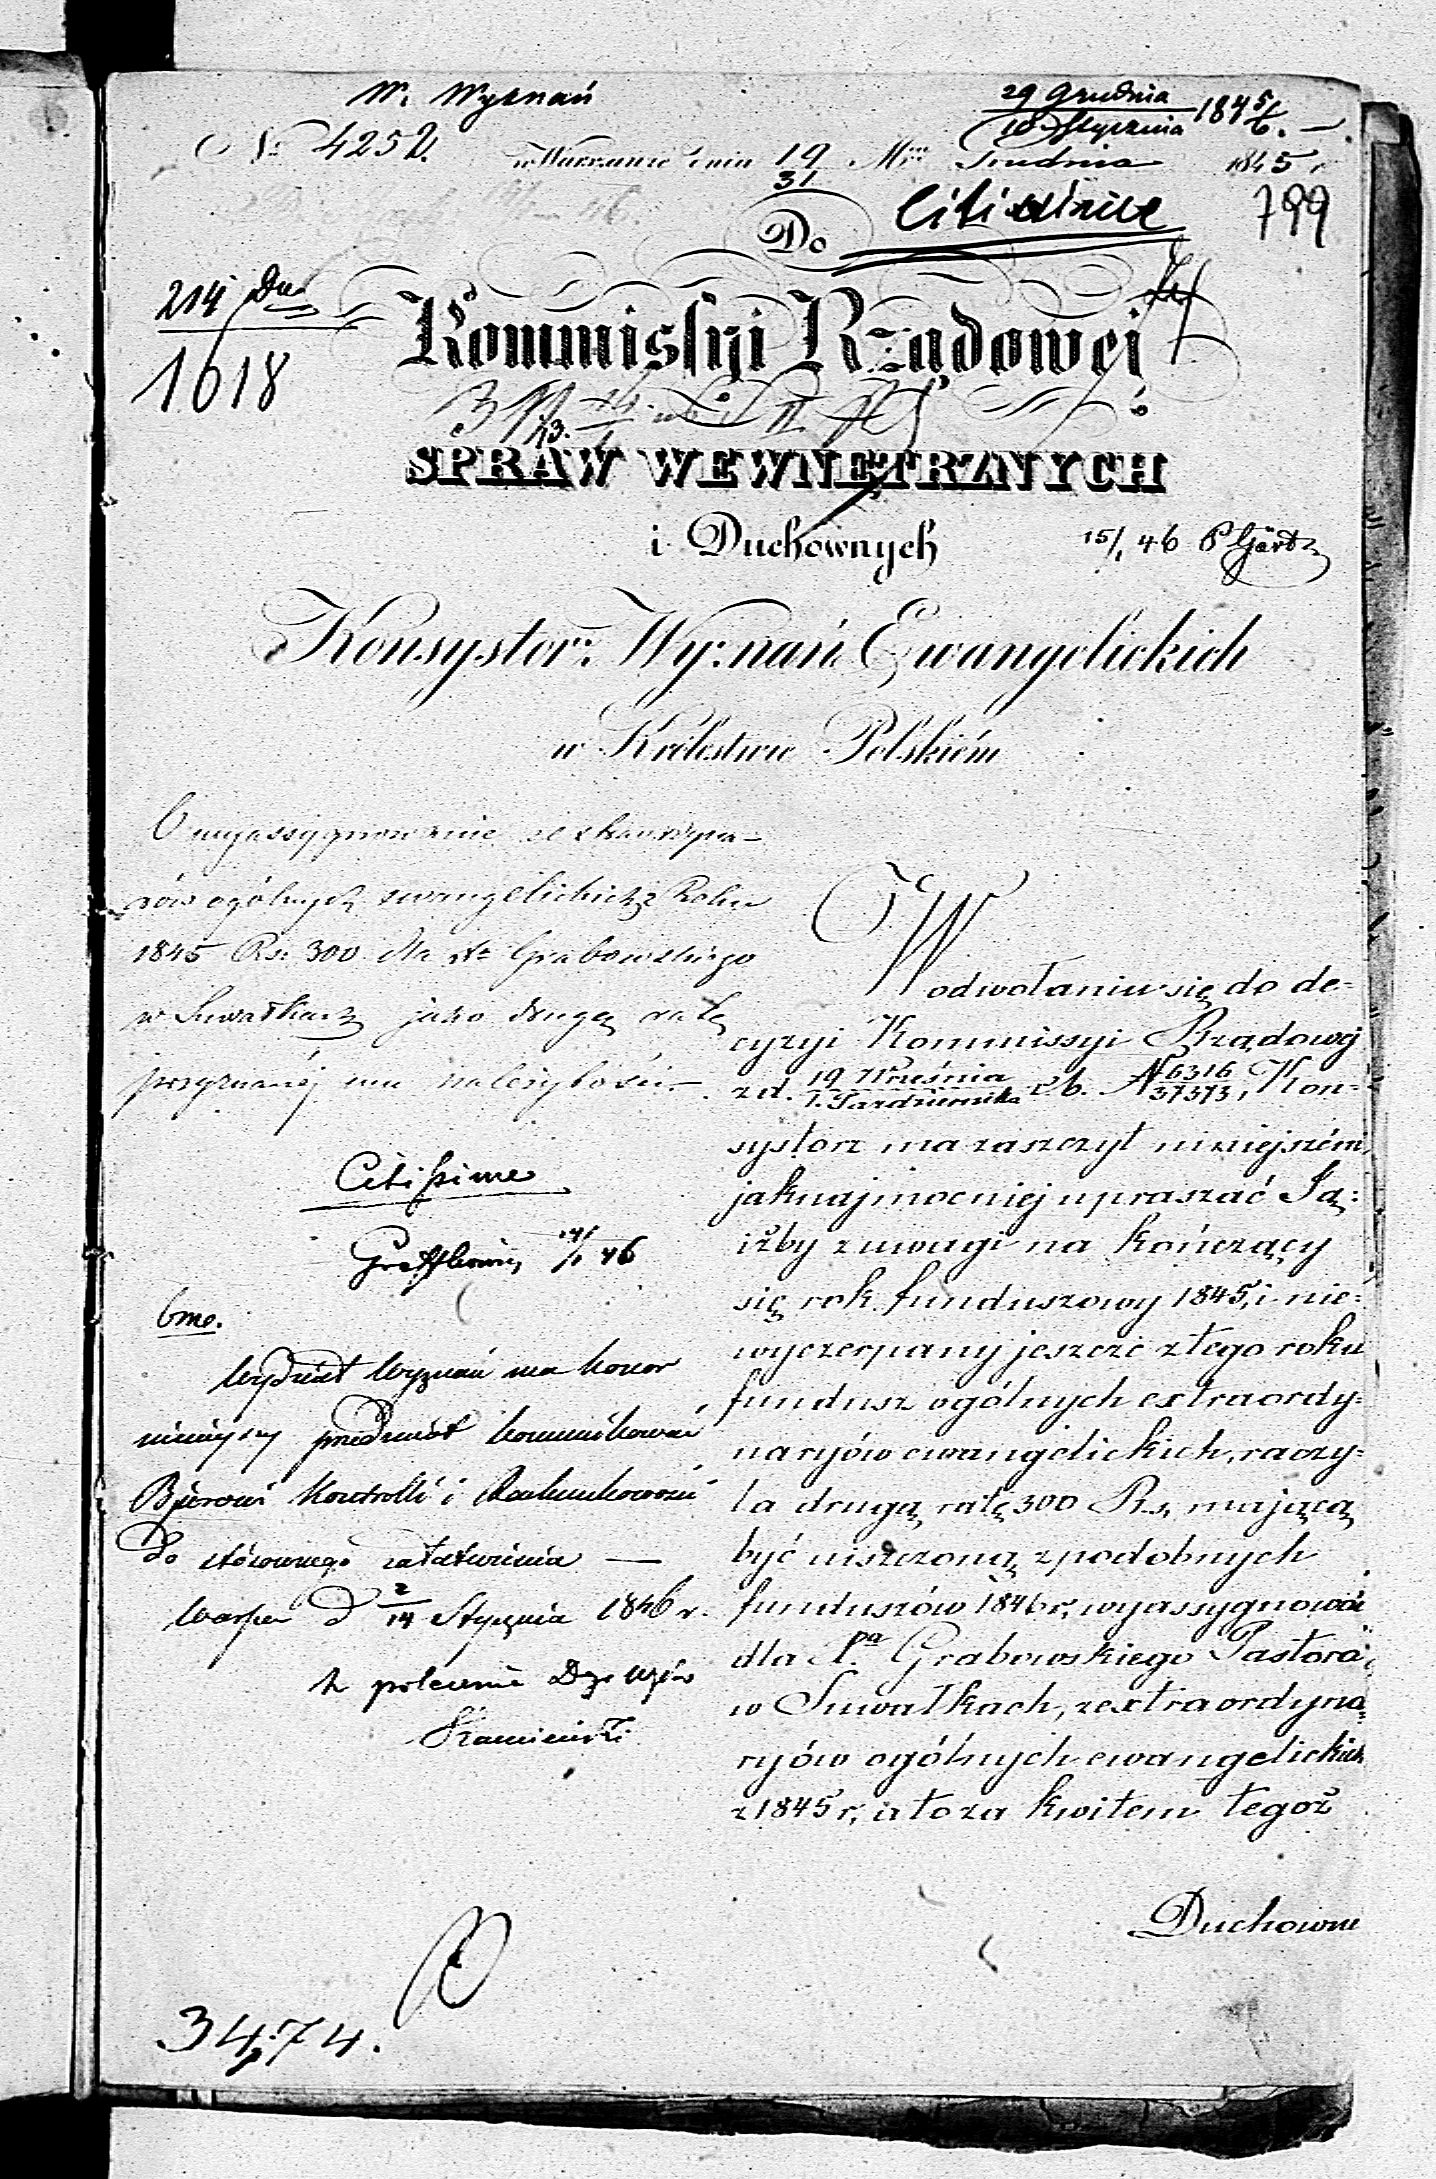 W. Wyznań
29 Grudnia
10 Stycznia 1845/6.
No 4252. w Warszawie dnia 19/31 Mca Grudnia 1845 r.
Citissime
799
Do
214
1618
Kommissyi Rządowej
SPRAW WEWNĘTRZNYCH
i Duchownych
15/1 46
Konsystorz Wyznań Ewangelickich
w Królestwie Polskiém
O wyassygnowanie z extraordyna-
ryów ogólnych ewangelickich z Roku
1845 Rs. 300 dla Xa Grabowskiego
w Suwałkach jako drugą ratę
przyznanéj mu należytości.—
Citissime
14/1 46
bmo.
Wydział Wyznań ma honor
niniejszy przedmiot kommunikować
Biurowi Kontrolli i Rachunkowości
do stósownego załatwienia —
Warsza d 2/14 Stycznia 1846 r.
z polecenia
Kamieński
34,74.
W odwołaniu się do de-
cyzyi Kommissyi Rządowej
z d. 19 Września / 1. Października r. b. N 6316/37373, Kon-
systorz ma zaszczyt niniejszém
jaknajmocniej upraszać Ją,
iżby z uwagi na kończący
się rok funduszowy 1845, i nie-
wyczerpany jeszcze z tego roku
fundusz ogólnych extraordy-
naryów ewangelickich, raczy-
ła drugą ratę 300 Rs. mającą
być uiszczoną z podobnych
funduszów 1846 r., wyassygnować
dla Xa Grabowskiego Pastora
w Suwałkach, z extraordyna-
ryów ogólnych ewangelickich
z 1845 r., a to za kwitem tegoż
Duchowne